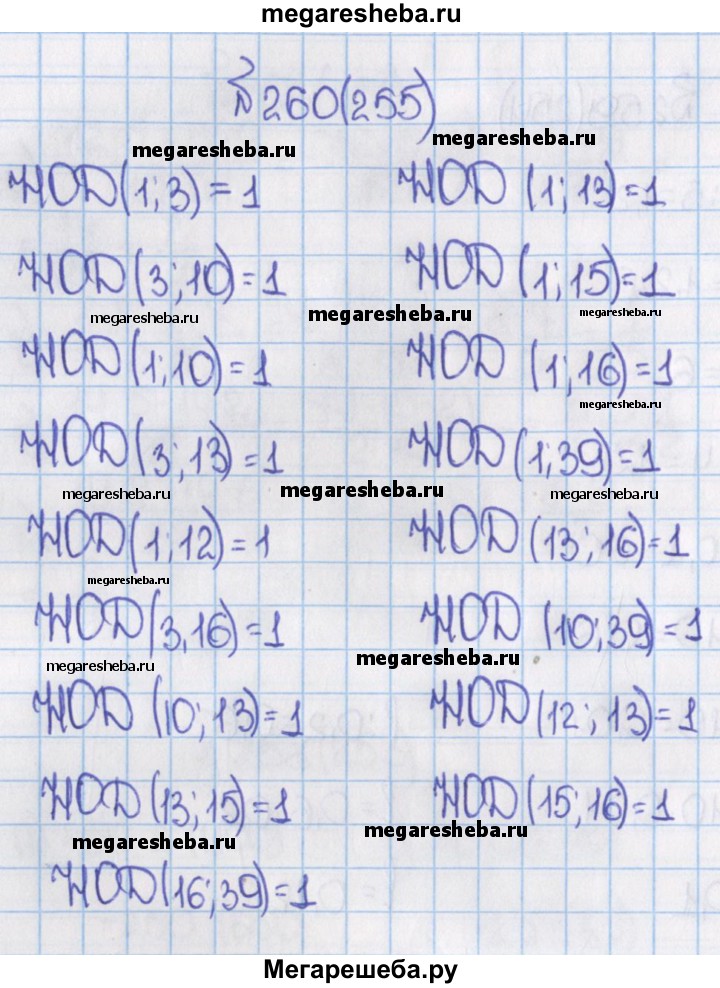 megaresheba.ru
№260(255)
megaresheba.ru
megaresheba.ru
НОД(1;3)=1 НОД (1;13)=1
НОД(3;10)=1 НОД(1;15)=1
megaresheba.ru megaresheba.ru megaresheba.ru
НОД(1;10)=1 НОД (1;16)=1
megaresheba.ru
НОД(3;13)=1 НОД(1;39)=1
megaresheba.ru megaresheba.ru megaresheba.ru
НОД(1;12)=1 НОД(13;16)=1
megaresheba.ru
НОД(3,16)=1 НОД (10;39)=1
megaresheba.ru megaresheba.ru
НОД (10;13)=1 НОД(12;13)=1
НОД(13;15)=1 НОД(15;16)=1
megaresheba.ru megaresheba.ru
НОД(16;39)=1
Мегарешеба.ру